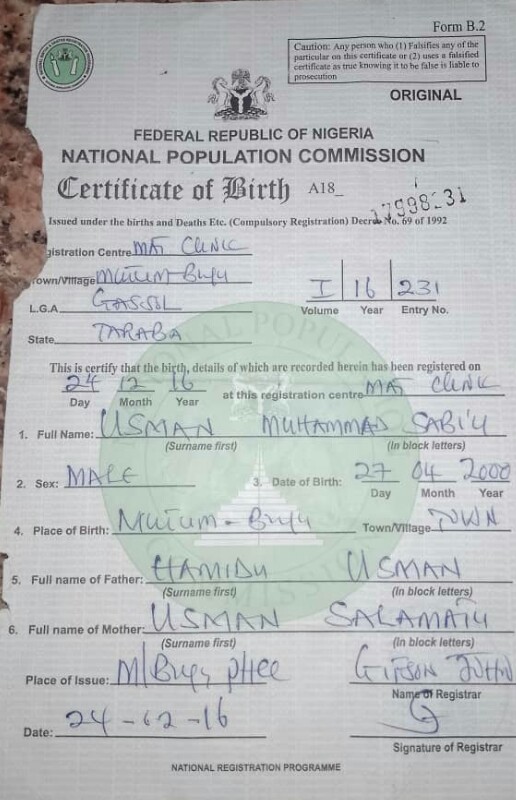 Form B.2
Caution: Any person who (1) Falsifies any of the
particular on this certificate or (2) uses a falsified
certificate as true knowing it to be false is liable to
prosecution
ORIGINAL
FEDERAL REPUBLIC OF NIGERIA
NATIONAL POPULATION COMMISSION
Certificate of Birth A18_
Issued under the births and Deaths Etc. (Compulsory Registration) Decree No. 69 of 1992
gistration Centre MAT CLINIC
own/Village Mutum-Biyu
L.G.A GASSOL I 16 231
Volume Year Entry No.
State TARABA
This is certify that the birth, details of which are recorded herein has been registered on
24 12 16 at this registration centre MAT CLINIC
Day Month Year
1. Full Name: USMAN MUHAMMAD SABI'U
(Surname first) (In block letters)
2. Sex: MALE 3. Date of Birth: 27 04 2000
Day Month Year
4. Place of Birth: Mutum-Biyu Town/Village TOWN
5. Full name of Father: HAMIDU USMAN
(Surname first) (In block letters)
6. Full name of Mother: USMAN SALAMATU
(Surname first) (In block letters)
Place of Issue: M/Biyu PHCC JOHN
Name of Registrar
Date: 24-12-16
Signature of Registrar
NATIONAL REGISTRATION PROGRAMME